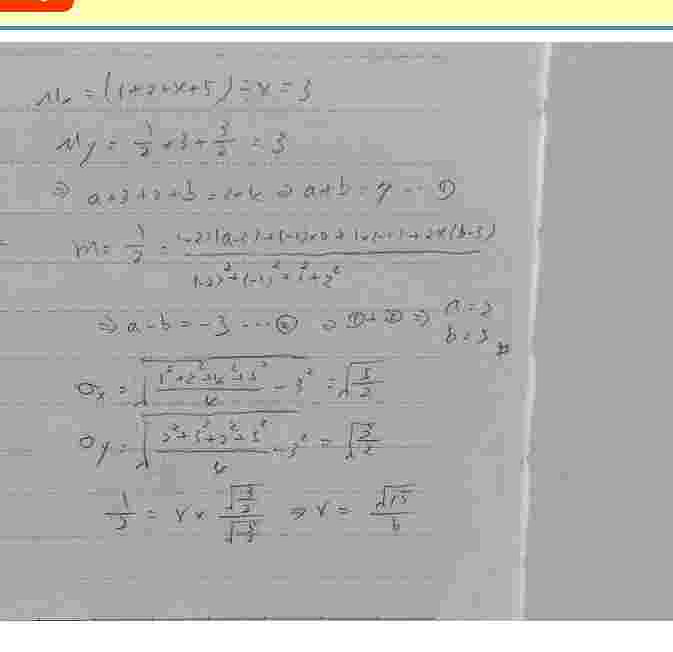 μx = (1+2+4+5)÷4 = 3
μy = 1/2 × 3 + 3/2 = 3
⇒ a+3+2+b = 12 ⇒ a+b = 7 ... ①
m = 1/2 = ((-2)(a-3)+(-1)×0+1×(-1)+2×(b-3))/((-2)²+(-1)²+1²+2²)
⇒ a-b = -3 ... ② ⇒ ①+② ⇒ a=2
b=5
σx = √((1²+2²+4²+5²)/4 - 3²) = √(5/2)
σy = √((2²+3²+2²+5²)/4 - 3²) = √(3/2)
1/2 = r × √(3/2)/√(5/2) ⇒ r = √15/6